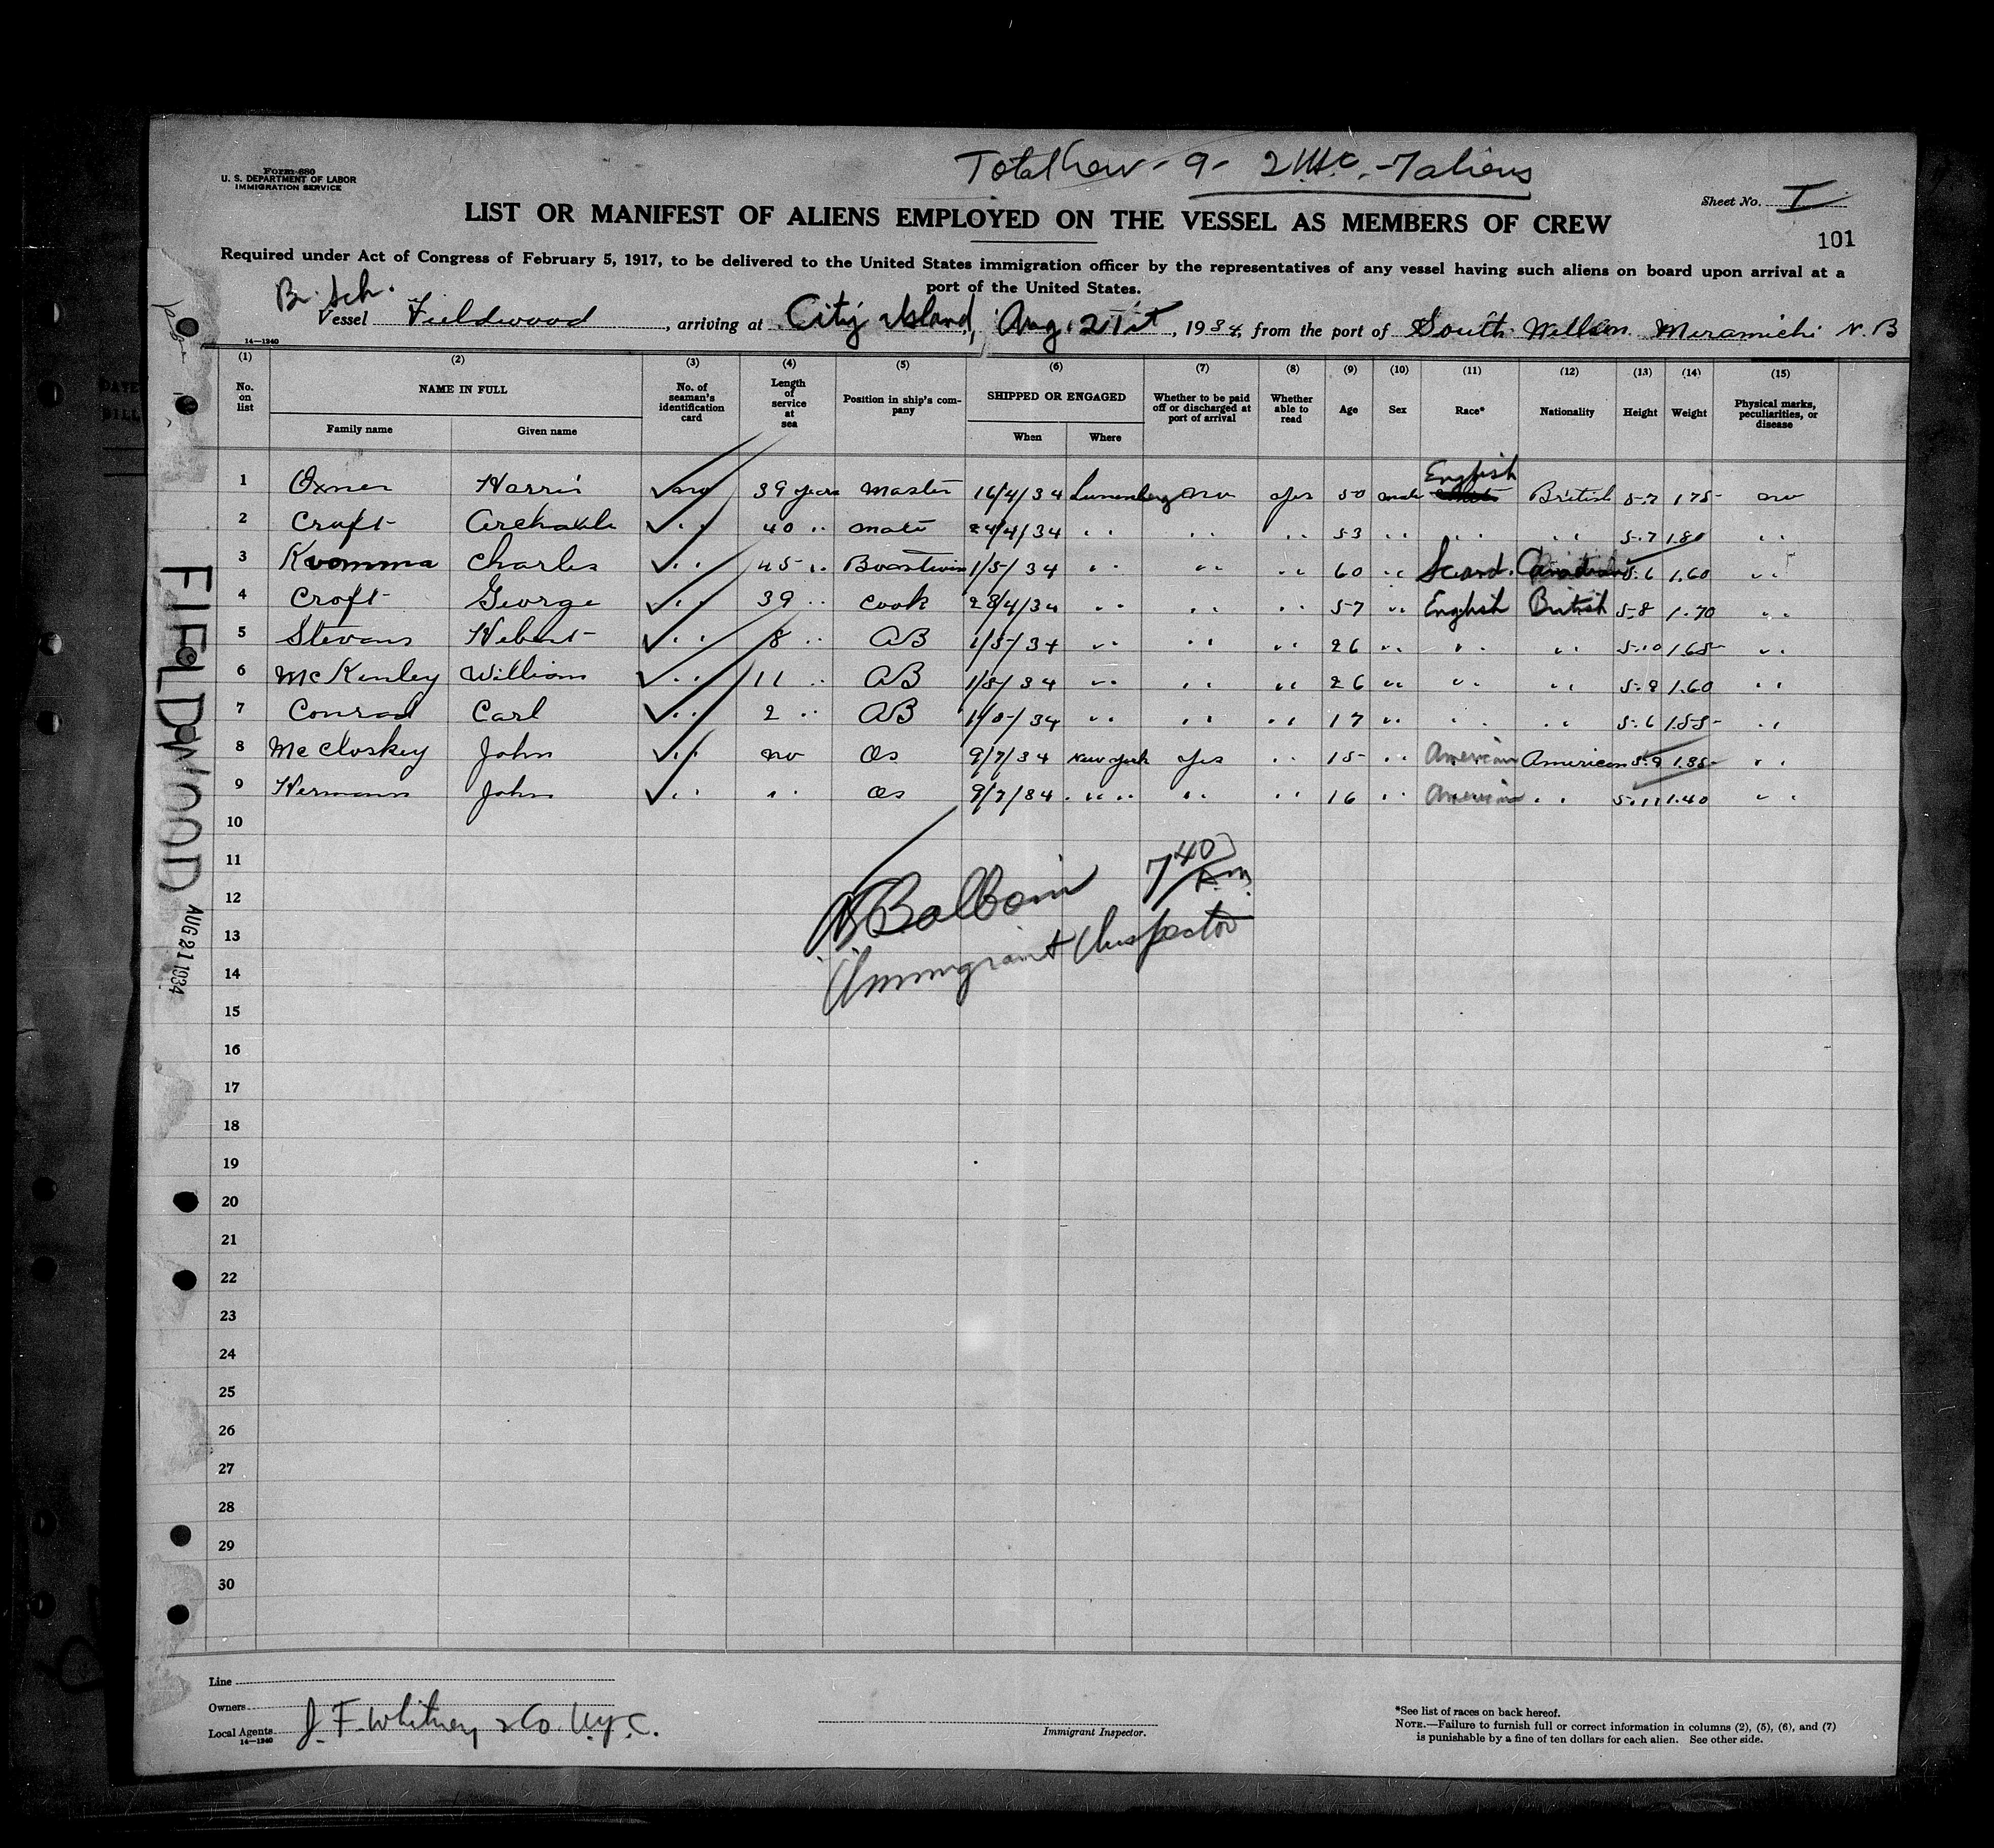 Total Crew - 9 - 2 USC. - 7 aliens
Form 680
U. S. DEPARTMENT OF LABOR
IMMIGRATION SERVICE
Sheet No. I
LIST OR MANIFEST OF ALIENS EMPLOYED ON THE VESSEL AS MEMBERS OF CREW
101
Required under Act of Congress of February 5, 1917, to be delivered to the United States immigration officer by the representatives of any vessel having such aliens on board upon arrival at a
port of the United States.
Br. Sch.
Vessel Fieldwood, arriving at City Island, Aug. 21st, 1934, from the port of South Nelson Miramichi N. B
14—1240
(1) (2) (3) (4) (5) (6) (7) (8) (9) (10) (11) (12) (13) (14) (15)
No. on list NAME IN FULL Family name Given name No. of seaman's identification card Length of service at sea Position in ship's company SHIPPED OR ENGAGED When Where Whether to be paid off or discharged at port of arrival Whether able to read Age Sex Race* Nationality Height Weight Physical marks, peculiarities, or disease
1 Oxner Harris no 39 years Master 16/4/34 Lunenberg no yes 50 male English British 5-7 175 no
2 Croft 40 " mate 24/4/34 " " " 53 " " " 5-7 180 "
3 Kvomma Charles " 45 " 1/5/34 " " " 60 " Scand. 5-6 1.60 "
4 Croft George " 39 " Cook 28/4/34 " " " 57 " English British 5-8 1.70 "
5 Stevans Hebert " 8 " AB 1/5/34 " " " 26 " " " 5-10 1.65 "
6 McKenley William " 11 " AB 1/5/34 " " " 26 " " " 5-9 1.60 "
7 Conrad Carl " 2 " AB 1/5/34 " " " 17 " " " 5-6 1.55 "
8 McCloskey John " no Os 9/7/34 New York yes " 15 " American American 5-9 1.35 "
9 Hermann John " " Os 9/7/34 " " " 16 " American " 5-11 1.40 "
10
11
12
13
14
15
16
17
18
19
20
21
22
23
24
25
26
27
28
29
30
7 40 A.m.
Immigrant Inspector
FIELDWOOD
AUG 21 1934
Line
Owners
Local Agents J. F. Whitney & Co. N.Y.C.
14—1240
Immigrant Inspector.
*See list of races on back hereof.
NOTE.—Failure to furnish full or correct information in columns (2), (5), (6), and (7)
is punishable by a fine of ten dollars for each alien. See other side.